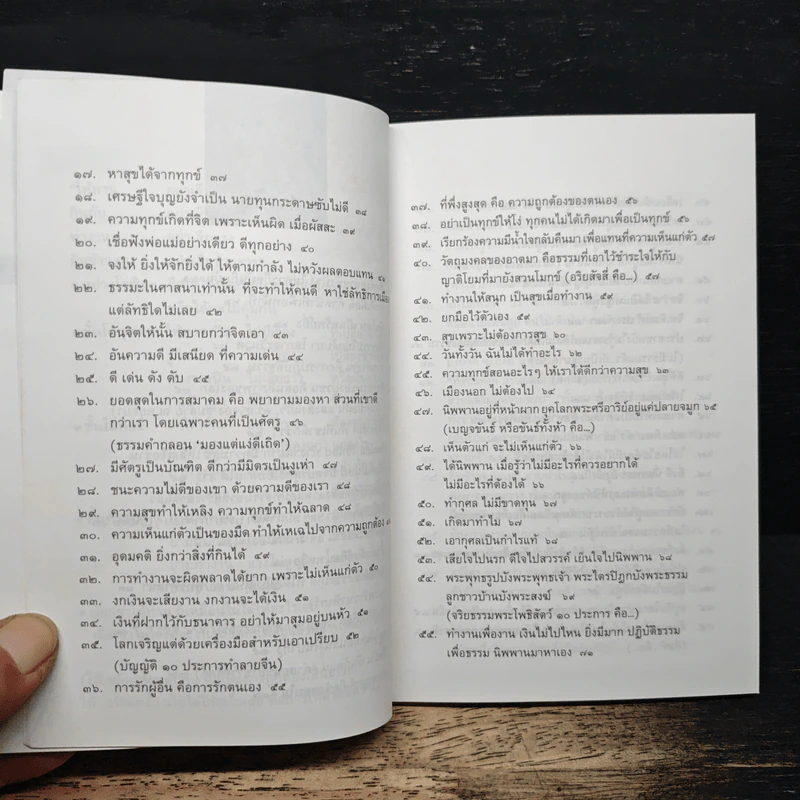 ๑๗. หาสุขได้จากทุกข์ ๓๗
๑๘. เศรษฐีใจบุญยังจำเป็น นายทุนกระดาษซับไม่ดี ๓๘
๑๙. ความทุกข์เกิดที่จิต เพราะเห็นผิด เมื่อผัสสะ ๓๙
๒๐. เชื่อฟังพ่อแม่อย่างเดียว ดีทุกอย่าง ๔๐
๒๑. จงให้ ยิ่งให้จักยิ่งได้ ให้ตามกำลัง ไม่หวังผลตอบแทน ๔๑
๒๒. ธรรมะในศาสนาเท่านั้น ที่จะทำให้คนดี หาใช่ลัทธิการเมือ
แต่ลัทธิใดไม่เลย ๔๒
๒๓. อันจิตให้นั้น สบายกว่าจิตเอา ๔๓
๒๔. อันความดี มีเสนียด ที่ความเด่น ๔๔
๒๕. ดี เด่น ดัง ดับ ๔๕
๒๖. ยอดสุดในการสมาคม คือ พยายามมองหา ส่วนที่เขาดี
กว่าเรา โดยเฉพาะคนที่เป็นศัตรู ๔๖
(ธรรมคำกลอน ‘มองแต่แง่ดีเถิด’)
๒๗. มีศัตรูเป็นบัณฑิต ดีกว่ามีมิตรเป็นงูเห่า ๔๗
๒๘. ชนะความไม่ดีของเขา ด้วยความดีของเรา ๔๘
๒๙. ความสุขทำให้เหลิง ความทุกข์ทำให้ฉลาด ๔๘
๓๐. ความเห็นแก่ตัวเป็นของมืด ทำให้เหเฉไปจากความถูกต้อง
๓๑. อุดมคติ ยิ่งกว่าสิ่งที่กินได้ ๔๙
๓๒. การทำงานจะผิดพลาดได้ยาก เพราะไม่เห็นแก่ตัว ๕๐
๓๓. งกเงินจะเสียงาน งกงานจะได้เงิน ๕๑
๓๔. เงินที่ฝากไว้กับธนาคาร อย่าให้มาสุมอยู่บนหัว ๕๑
๓๕. โลกเจริญแต่ด้วยเครื่องมือสำหรับเอาเปรียบ ๕๒
(บัญญัติ ๑๐ ประการทำลายจีน)
๓๖. การรักผู้อื่น คือการรักตนเอง ๕๕
๓๗. ที่พึ่งสูงสุด คือ ความถูกต้องของตนเอง ๕๖
๓๘. อย่าเป็นทุกข์ให้โง่ ทุกคนไม่ได้เกิดมาเพื่อเป็นทุกข์ ๕๖
๓๙. เรียกร้องความมีน้ำใจกลับคืนมา เพื่อแทนที่ความเห็นแก่ตัว ๕๗
๔๐. วัตถุมงคลของอาตมา คือธรรมที่เอาไว้ชำระใจให้กับ
ญาติโยมที่มายังสวนโมกข์ (อริยสัจสี่ คือ...) ๕๗
๔๑. ทำงานให้สนุก เป็นสุขเมื่อทำงาน ๕๙
๔๒. ยกมือไว้ตัวเอง ๕๙
๔๓. สุขเพราะไม่ต้องการสุข ๖๐
๔๔. วันทั้งวัน ฉันไม่ได้ทำอะไร ๖๒
๔๕. ความทุกข์สอนอะไรๆ ให้เราได้ดีกว่าความสุข ๖๓
๔๖. เมืองนอก ไม่ต้องไป ๖๔
๔๗. นิพพานอยู่ที่หน้าผาก ยุคโลกพระศรีอาริย์อยู่แค่ปลายจมูก ๖๕
(เบญจขันธ์ หรือขันธ์ทั้งห้า คือ...)
๔๘. เห็นตัวแก่ จะไม่เห็นแก่ตัว ๖๖
๔๙. ได้นิพพาน เมื่อรู้ว่าไม่มีอะไรที่ควรอยากได้
ไม่มีอะไรที่ต้องได้ ๖๖
๕๐. ทำกุศล ไม่มีขาดทุน ๖๗
๕๑. เกิดมาทำไม ๖๗
๕๒. เอากุศลเป็นกำไรแท้ ๖๘
๕๓. เสียใจไปนรก ดีใจไปสวรรค์ เย็นใจไปนิพพาน ๖๘
๕๔. พระพุทธรูปบังพระพุทธเจ้า พระไตรปิฎกบังพระธรรม
ลูกชาวบ้านบังพระสงฆ์ ๖๙
(จริยธรรมพระโพธิสัตว์ ๑๐ ประการ คือ...)
๕๕. ทำงานเพื่องาน เงินไม่ไปไหน ยิ่งมีมาก ปฏิบัติธรรม
เพื่อธรรม นิพพานมาหาเอง ๗๑